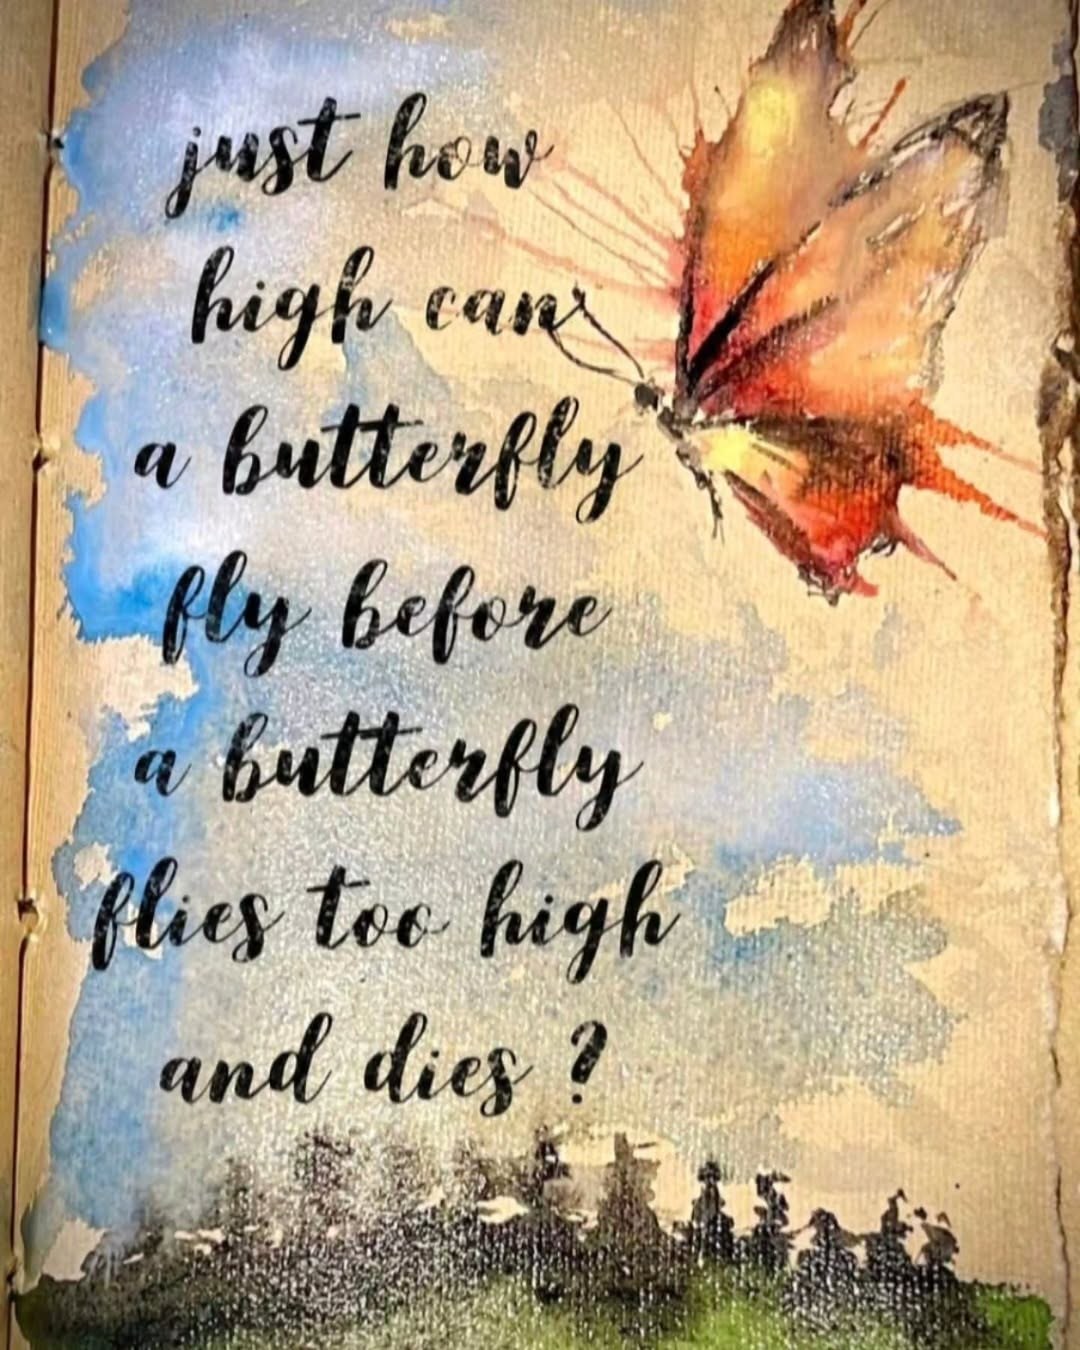 just how
high can
a butterfly
fly before
a butterfly
flies too high
and dies ?